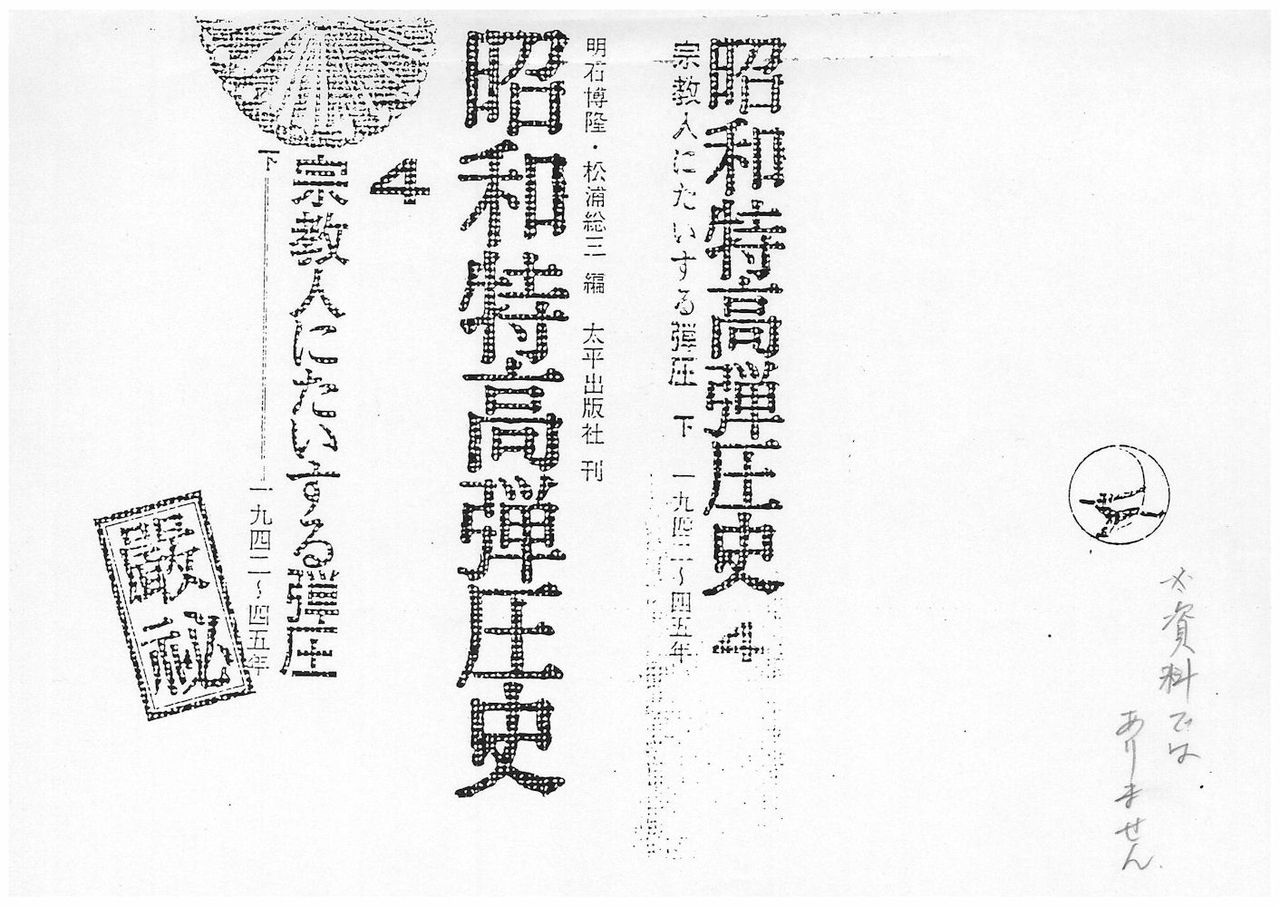 資料では
ありません
昭和特高弾圧史 4
宗教人にたいする弾圧 下 一九四二〜四五年
明石博隆・松浦総三 編 太平出版社 刊
昭和特高弾圧史
4
宗教人にたいする弾圧
下 一九四二〜四五年
厳秘